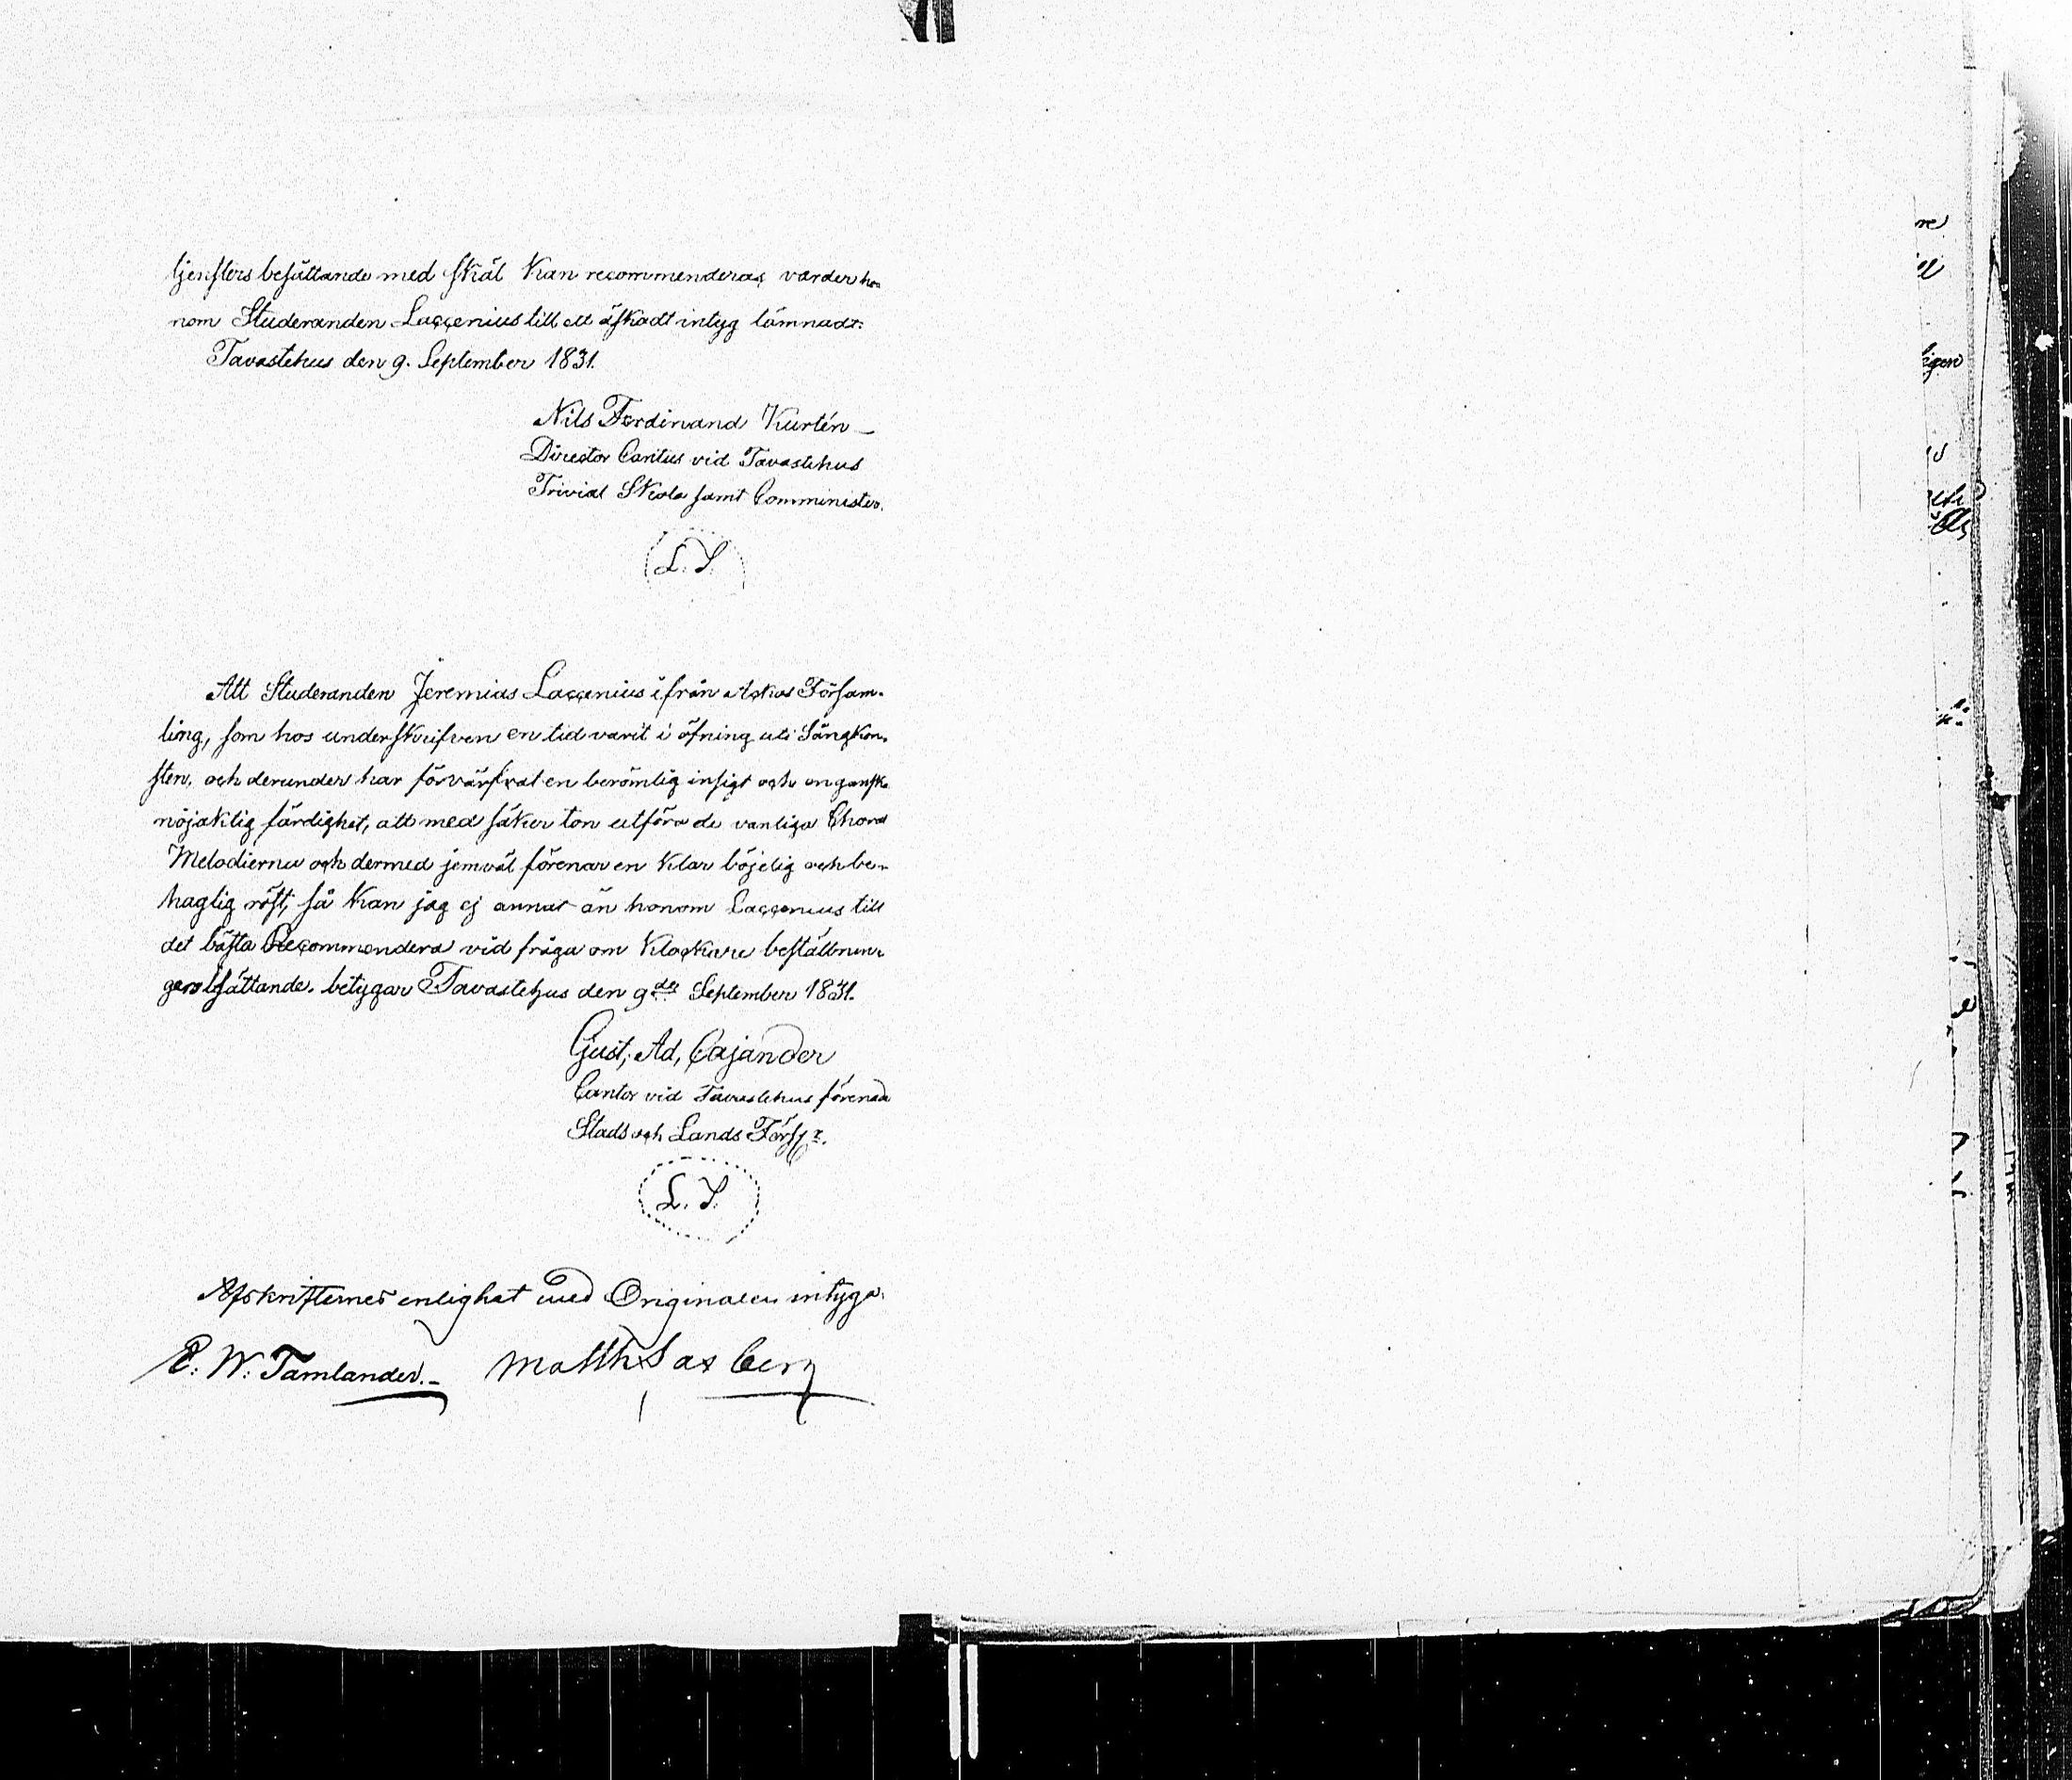 tjensters besättande med skäl kan recommenderas varder ho-
nom Studeranden Laccenius till ett äskadt intyg lämnadt:
Tavastehus den 9. September 1831.
Nils Ferdinand Kurtén
Director Cantus vid Tavastehus
Trivial Skola samt Comminister.
L. S.
Att Studeranden Jeremias Laccenius ifrån Askas Försam-
ling, som hos underskrifven en tid varit i öfning uti Sångkon-
sten, och derunder har förvärfvat en berömlig insigt och en ganska
nöjaktig färdighet, att med säker ton utföra de vanliga Choral
Melodierna och dermed jemväl förenar en klar böjelig och be-
haglig röst; så kan jag ej annat än honom Laccenius till
det bästa Recommendera vid fråga om klockare beställnin-
gars besättande. betygar Tavastehus den 9de September 1831.
Gust. Ad. Cajander
Cantor vid Tavastehus förenade
Stads och Lands Förs:r.
L. S.
Afskrifternes enlighet med Originalen intyga:
E. W. Tamlander. Matth Saxberg